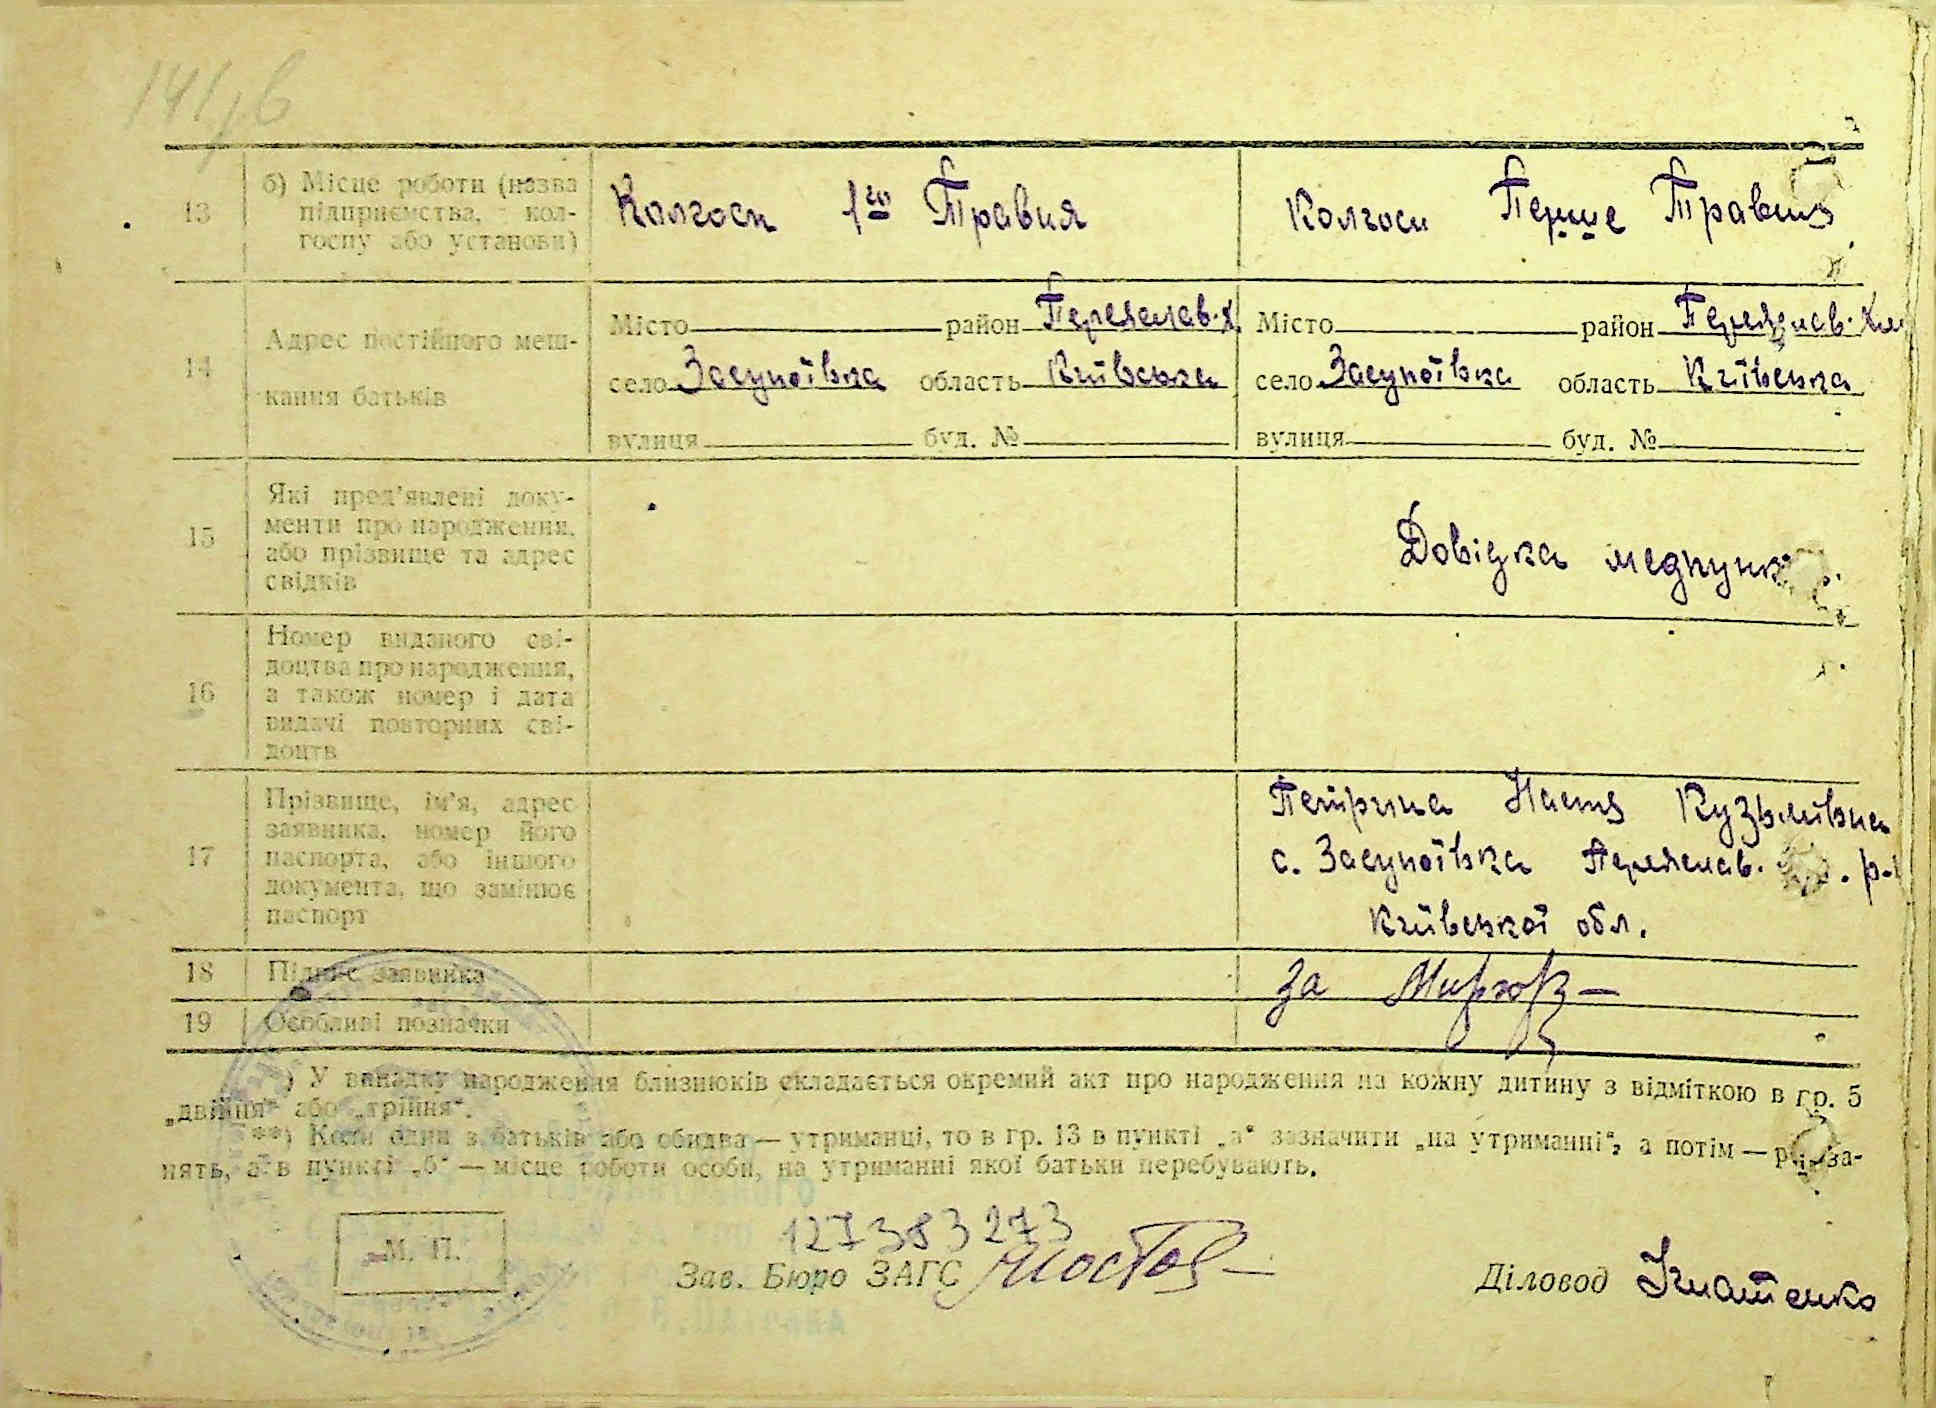 141/6
13
б) Місце роботи (назва
підприємства, кол-
госпу або установи)
Колгосп 1го Травня
Колгосп Перше Травня
14
Адрес постійного меш-
кання батьків
Місто район Переяслав.Х
село Засупоївка область Київська
вулиця буд. №
Місто район Переяслав.Хм
село Засупоївка область Київська
вулиця буд. №
15
Які пред'явлені доку-
менти про народження,
або прізвище та адрес
свідків
Довідка медпунк
16
Номер виданого сві-
доцтва про народження,
а також номер і дата
видачі повторних сві-
доцтв
17
Прізвище, ім'я, адрес
заявника, номер його
паспорта, або іншого
документа, що замінює
паспорт
Петрина Настя Кузьмівна
с. Засупоївка Переяслав. р-
Київської обл.
18
Підпис заявника
за
19
Особливі позначки
) У випадку народження близнюків складається окремий акт про народження на кожну дитину з відміткою в гр. 5
„двійня" або „трійня".
**) Коли один з батьків або обидва — утриманці, то в гр. 13 в пункті „а" зазначити „на утриманні", а потім — рід за-
нять, а в пункті „б" — місце роботи особи, на утриманні якої батьки перебувають.
М. П.
127383273
Зав. Бюро ЗАГС
Діловод Ігнатенко